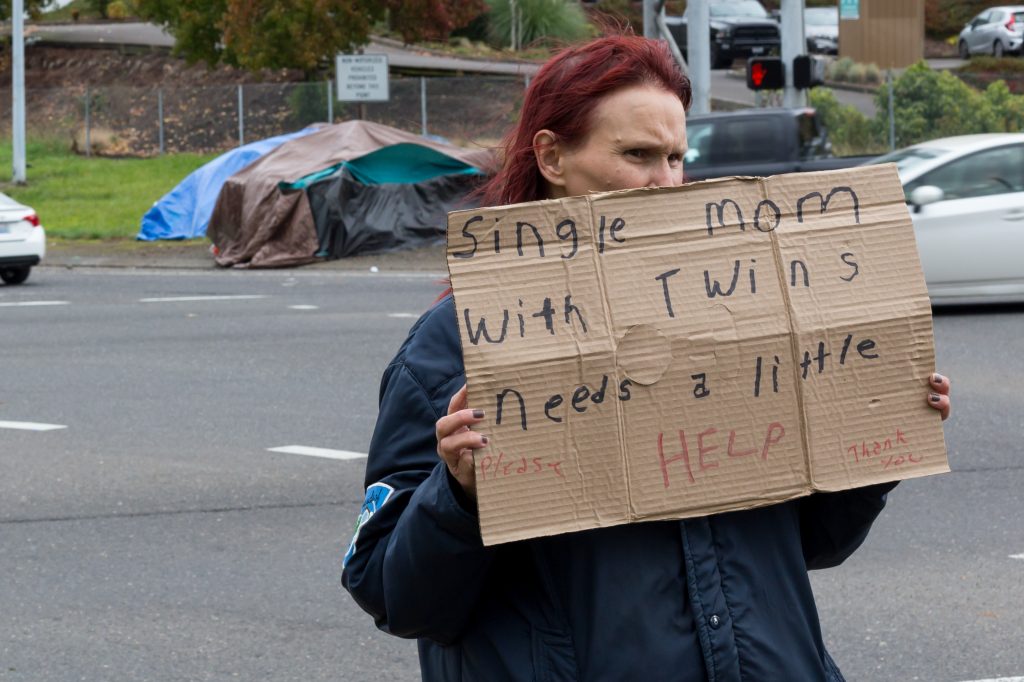 NON-MOTORIZED
VEHICLES
PROHIBITED
BEYOND THIS
POINT
Single mom
With Twins
needs a little
Please HELP Thank
You